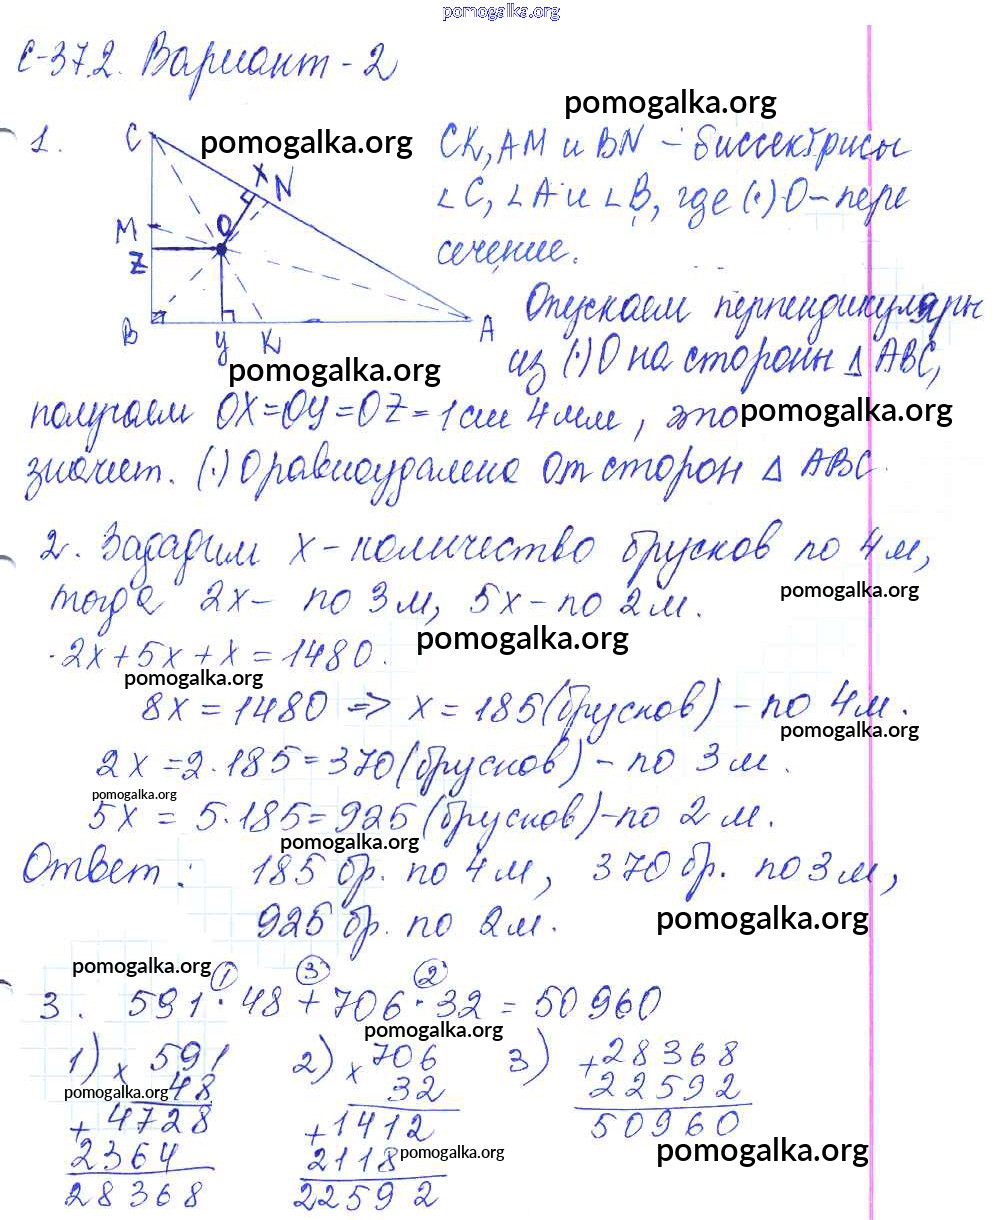 pomogalka.org
С-37.2. Вариант - 2
pomogalka.org
1. C pomogalka.org CK, AM и BN - биссектрисы
X N
∠C, ∠A и ∠B, где (·) O - пере
M O
сечение.
Z
Опускаем перпендикуляры
B Y K A
из (·) O на стороны △ ABC,
pomogalka.org
получаем OX=OY=OZ=1см 4мм, это
pomogalka.org
значит. (·) O равноудалена от сторон △ ABC.
2. Зададим x - количество брусков по 4 м,
pomogalka.org
тогда 2x - по 3 м, 5x - по 2 м.
pomogalka.org
2x + 5x + x = 1480.
pomogalka.org
8x = 1480 => x = 185 (брусков) - по 4 м.
pomogalka.org
2x = 2·185 = 370 (брусков) - по 3 м.
pomogalka.org
5x = 5·185 = 925 (брусков) - по 2 м.
pomogalka.org
Ответ: 185 бр. по 4 м, 370 бр. по 3 м,
925 бр. по 2 м.
pomogalka.org
pomogalka.org
1 3 2
3. 591 · 48 + 706 · 32 = 50960
pomogalka.org
1) × 591 2) × 706 3) + 28368
pomogalka.org
48 32 22592
+ 4728 + 1412 50960
2364 2118
pomogalka.org
pomogalka.org
28368 22592